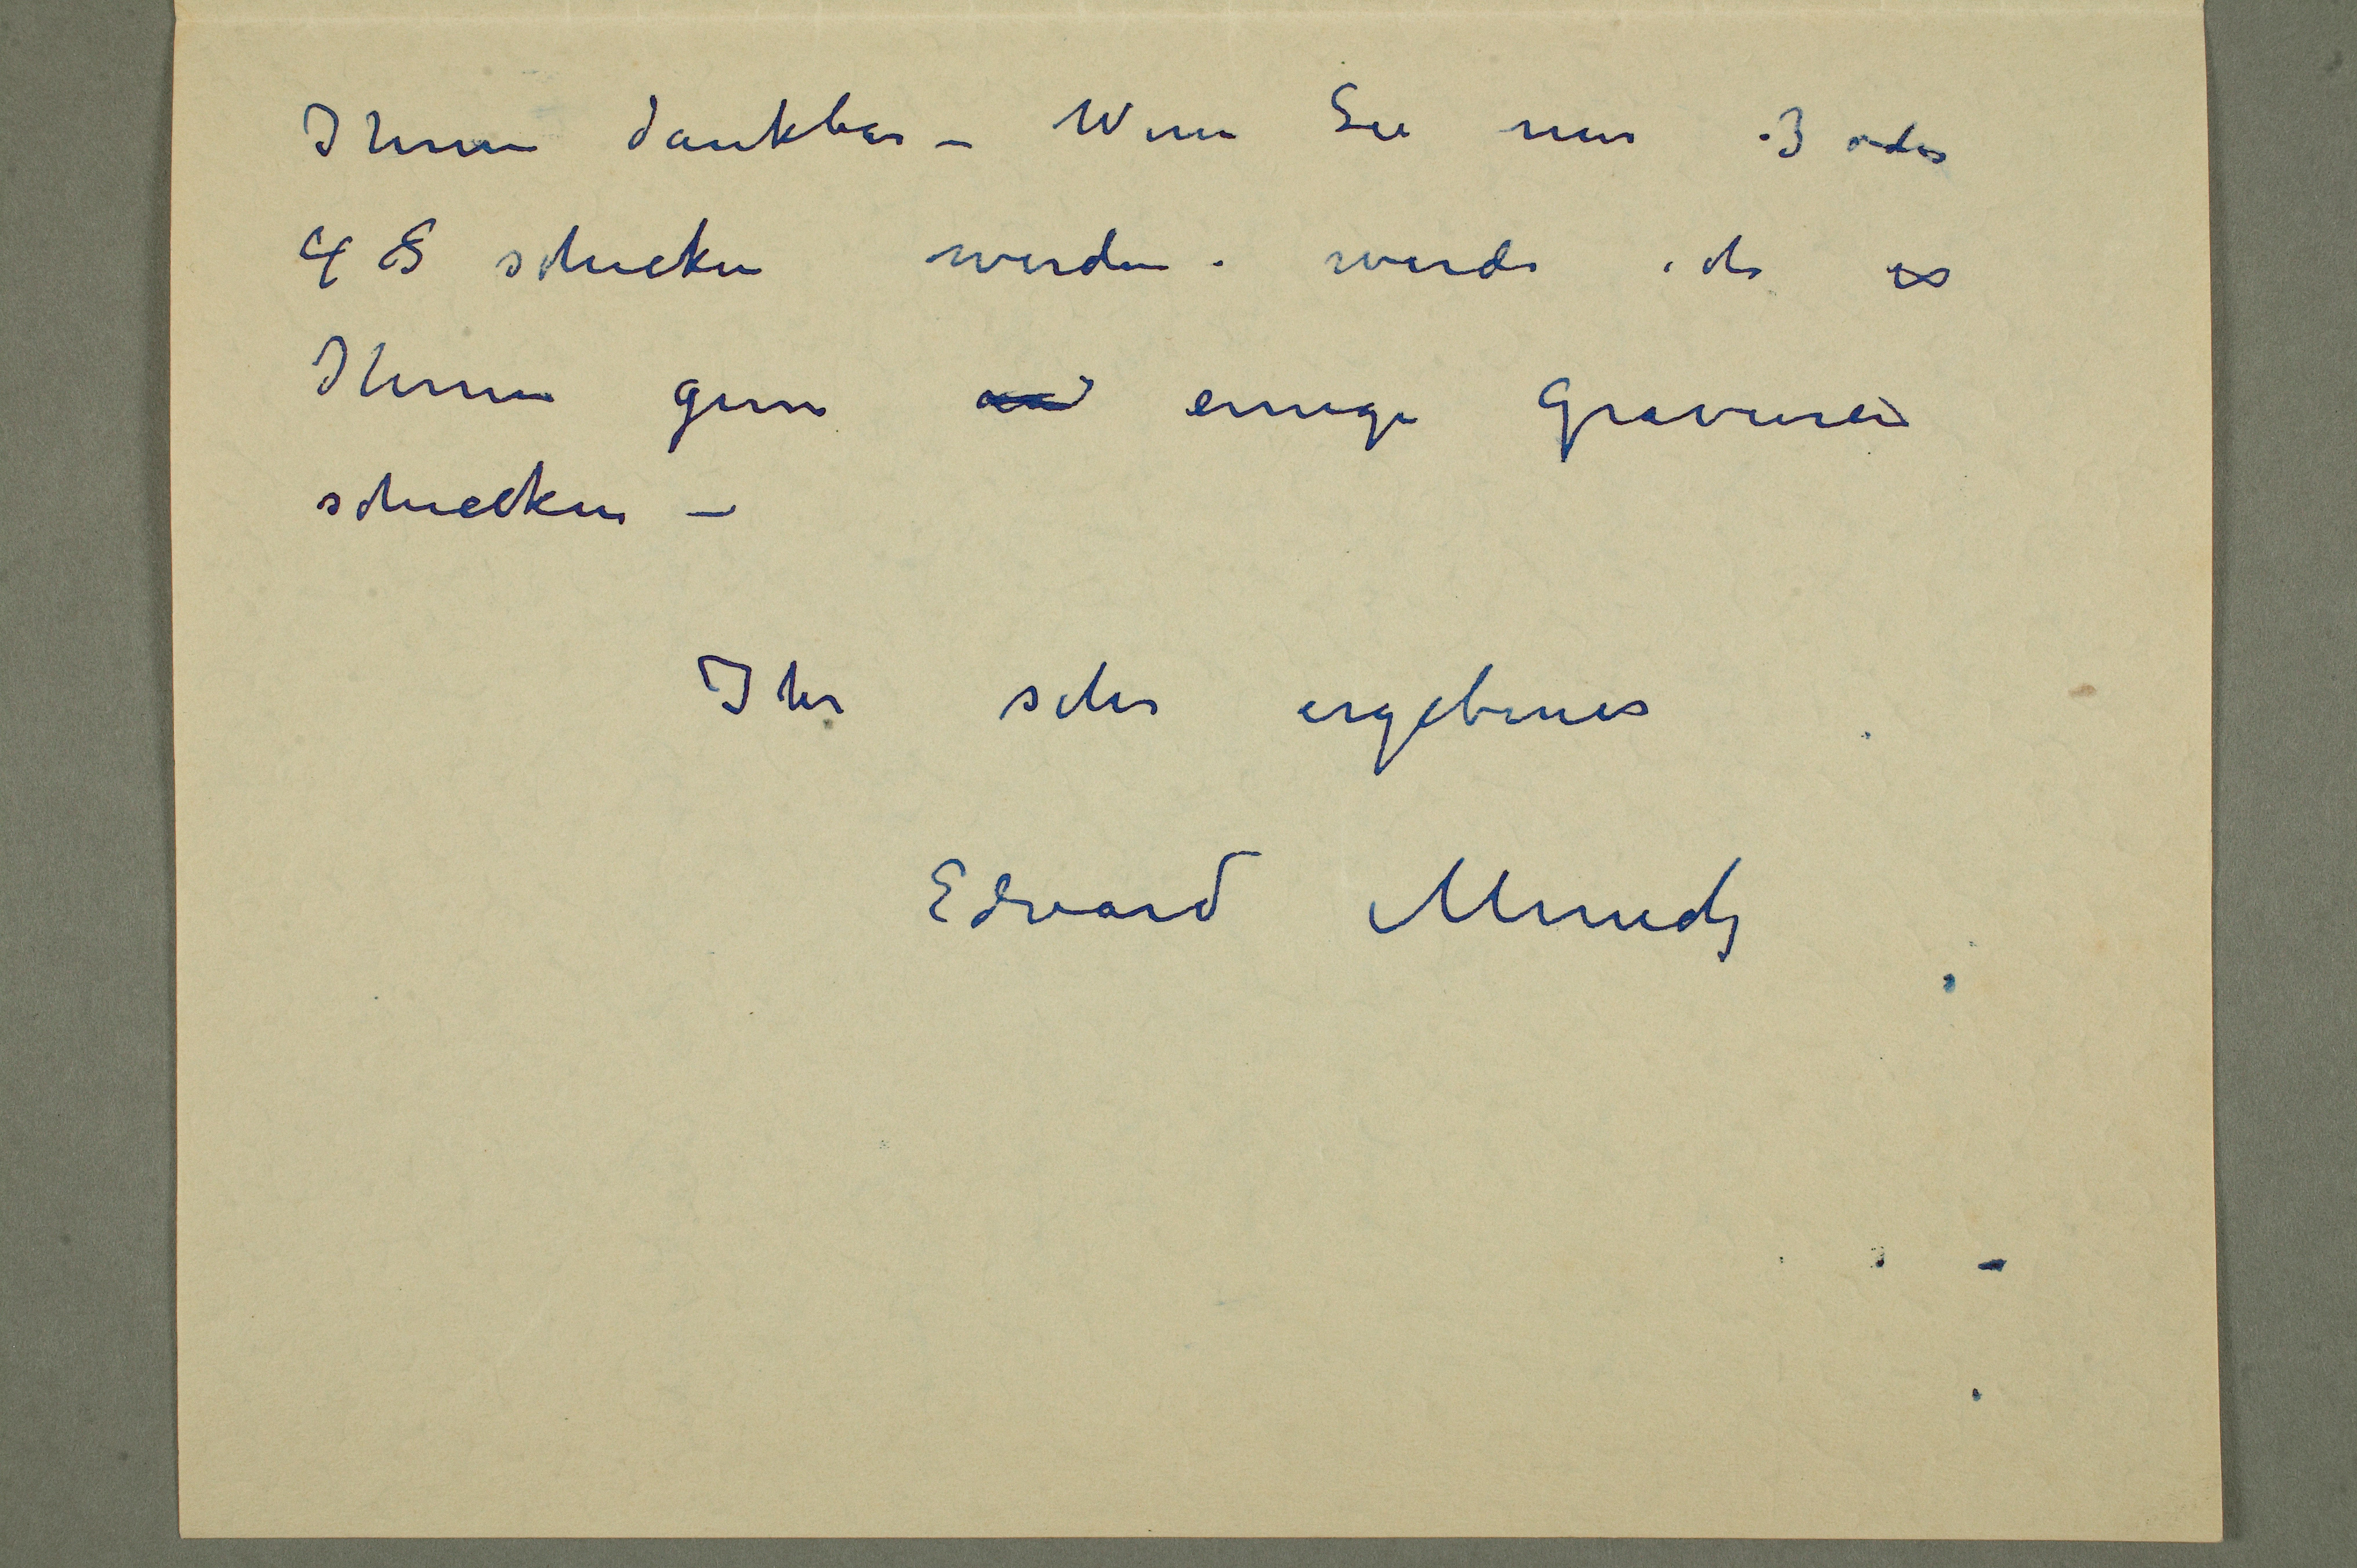 Ihnen dankbar – Wenn Sie nur 3 oder
4 schicken werden – werde ich es
Ihnen gern einige Gravuren
schicken –
Ihr sehr ergebener
Edvard Munch